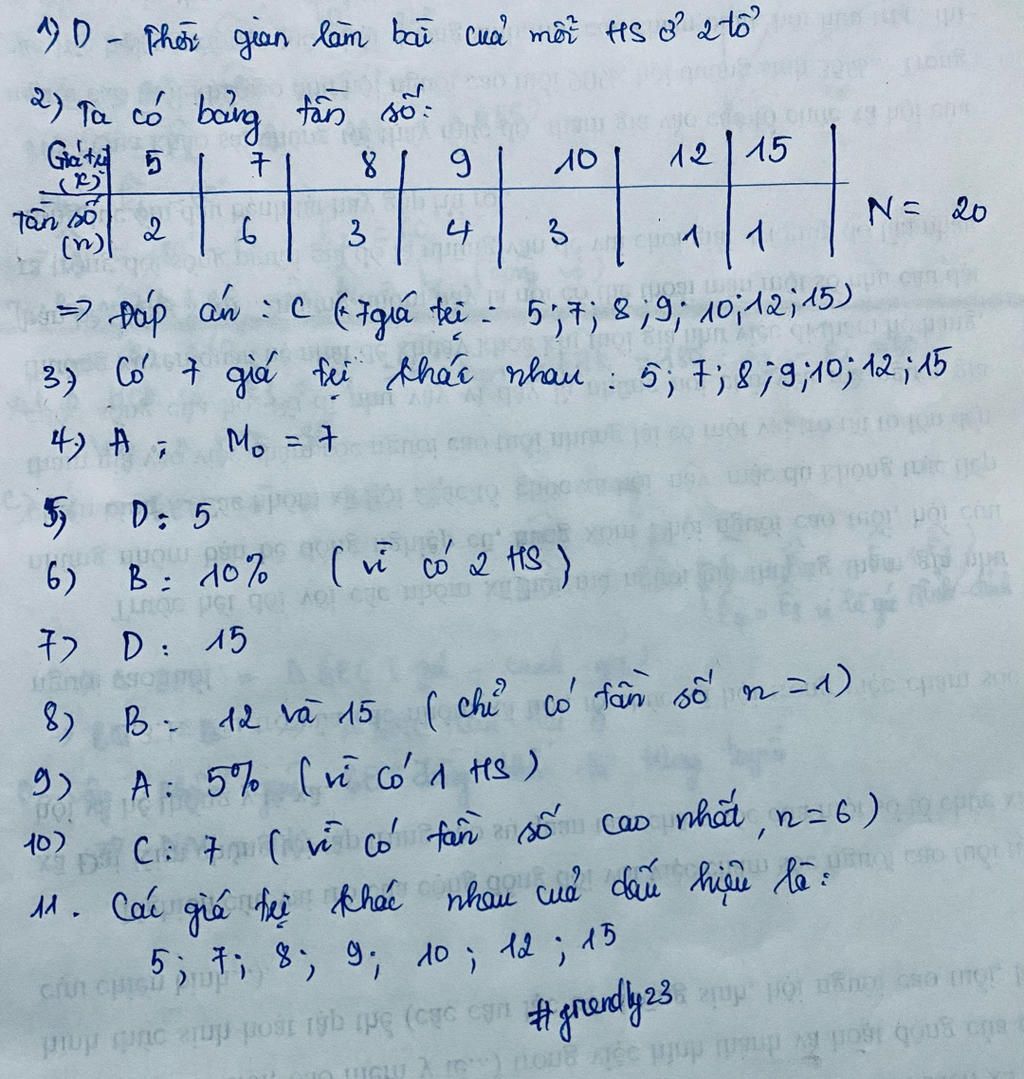 1) D Thời gian làm bài của mỗi HS ở 2 tổ
2) Ta có bảng tần số:
Giá trị (x) 5 7 8 9 10 12 15
Tần số (n) 2 6 3 4 3 1 1 N = 20
=> Đáp án : C (7 giá trị : 5; 7; 8; 9; 10; 12; 15)
3) Có 7 giá trị khác nhau : 5; 7; 8; 9; 10; 12; 15
4) A : M₀ = 7
5) D: 5
6) B: 10% (vì có 2 HS)
7) D: 15
8) B: 12 và 15 (chỉ có tần số n = 1)
9) A: 5% (vì có 1 HS)
10) C: 7 (vì có tần số cao nhất, n = 6)
11. Các giá trị khác nhau của dấu hiệu là:
5; 7; 8; 9; 10; 12; 15